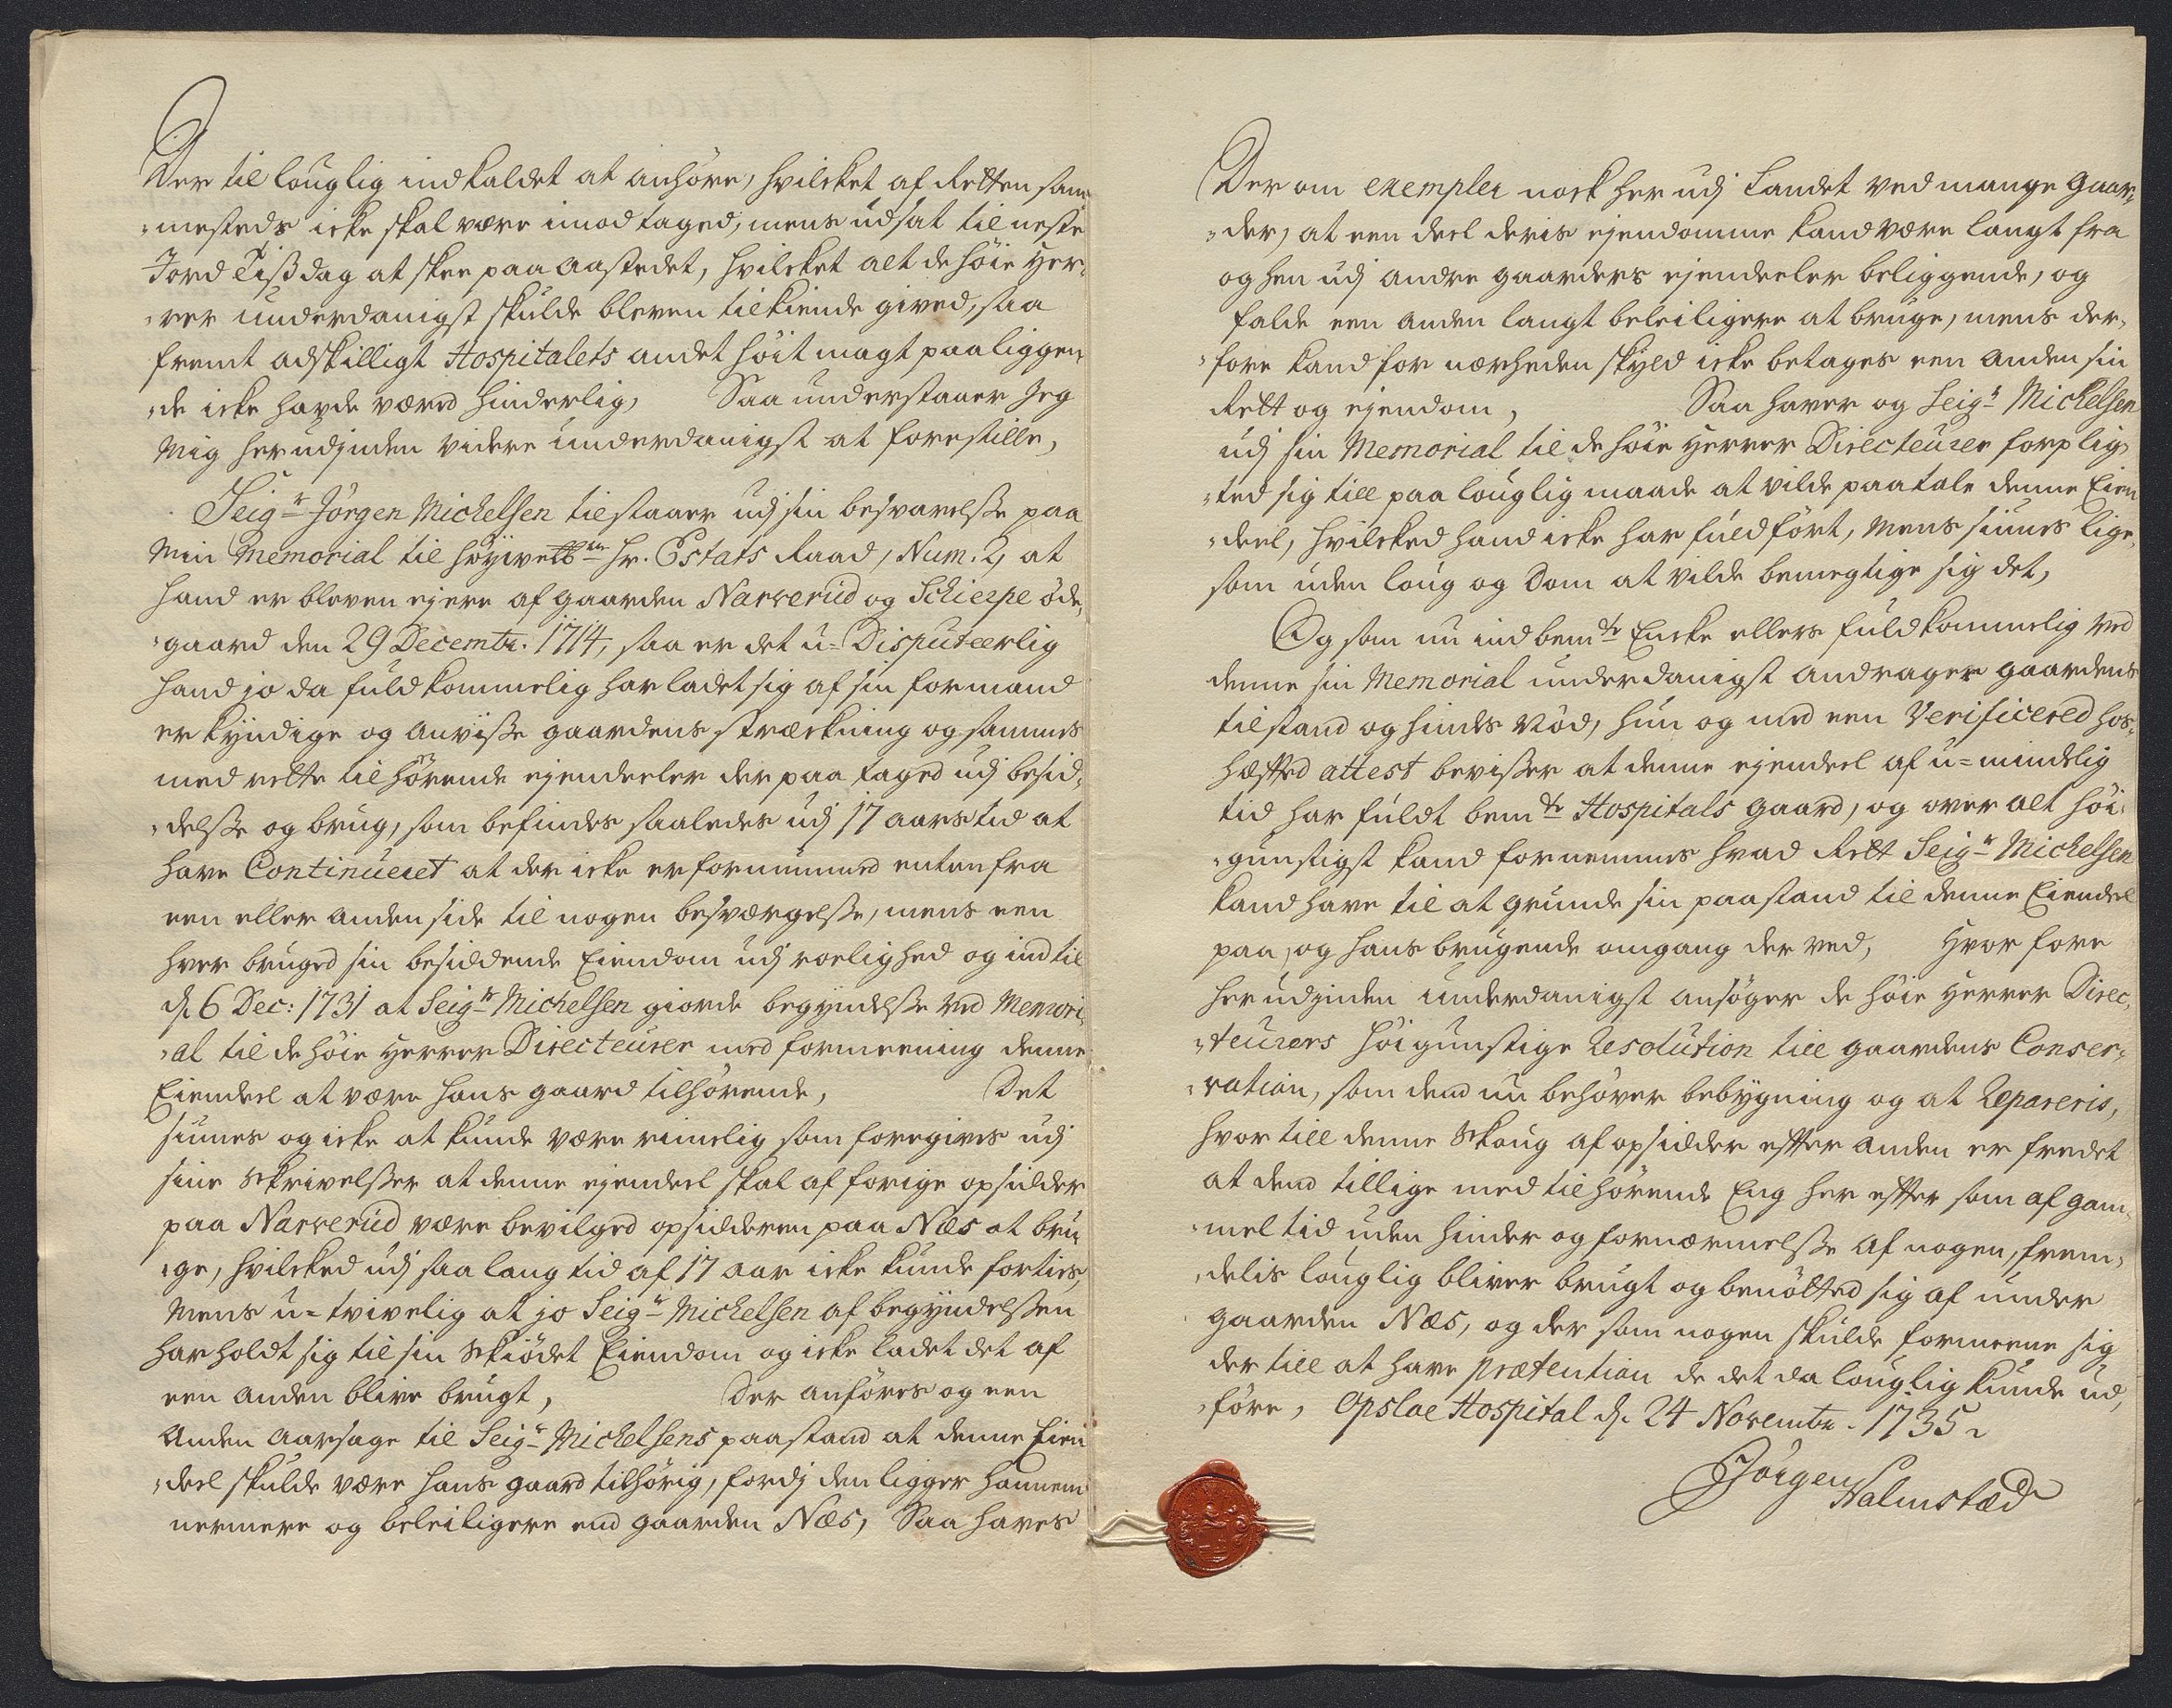 Der til louglig indkaldet at anhöre, hvilcket af Retten sam¬
„mesteds icke skal være imodtaged, mens udsat til neste
Jord Tißdag at skee paa aastedet, hvilcket alt de höie Her¬
„rer underdanigst skulde bleven tilkiende gived, saa
fremt adskilligt Hospitalets andet höit magt paaliggen¬
„de icke hafde væred hinderlig, Saa understaaer Jeg
Mig herudjnden videre underdanigst at forestille,
Seigr Jörgen Michelsen tilstaaer udj sin besvarelsse paa
Min Memorial til Hr. Estats Raad, Num: 2, at
hand er bleven ejere af gaarden Narverud og Schierpe öde¬
„gaard den 29 Decembr. 1714, saa er det u-Disputeerlig
hand jo da fuldkommelig har ladet sig af sin formand
er kyndige og anvisse gaardens stræckning og sammes
med rette tilhörende ejendeeler der paa taged udj besid¬
„delsse og brug, som befindes saaledes udj 17 aars tid at
have Continueret at der icke er fornummed enten fra
een eller anden side til nogen besværgelsse, mens een
hver bruged sin besiddende Eiendom udj roelighed og ind til
d. 6 Dec: 1731 at Seigr Michelsen giorde begyndelsse ved Memori¬
„al til de höie Herrer Directeurer med formeening denne
Eiendeel at være hans gaard tilhörende, Det
siunes og icke at kunde være rimelig som foregives udj
sine Skrivelsser at denne ejendeel skal af forige opsidder
paa Narverud være bevilged opsidderen paa Næs at bru¬
„ge, hvilcked udj saa lang tid af 17 aar icke kunde forties,
Mens u-tvivelig at jo Seigr Michelsen af begyndelssen
har holdt sig til sin Skiödet Eiendom og icke ladet det af
een anden blive brugt, Der anföres og een
Anden aarsage til Seigr Michelsens paastand at denne Eien
„deel skulde være hans gaard tilhörig, fordj den ligger hannem
nermere og beleiligere end gaarden Næs, Saa haves
Der om exempler nock her udj Landet ved mange Gaar¬
„der, at een deel deris ejendomme kand være langt fra
og hen udj andre gaarders ejendeeler beliggende, og
falde een anden langt beleiligere at bruge, mens der¬
„fore kand for nærheden skyld icke betages een anden sin
Rett og ejendom, Saa haver og Seigr Michelsen
udj sin Memorial til de höie Herrer Directeurer forplig¬
„ted sig till paa louglig maade at vilde paatale denne Eien
„deel, hvilcked hand icke har fuldfört, Mens siunes lige¬
som uden loug og Dom at vilde bemegtige sig det,
Og som nu ind bemte Encke ellers fuldkommelig ved
denne sin Memorial underdanigst andrager gaardens
tilstand og hindes Nöd, hun og med een Verificered hos¬
hefted attest bevisser at denne ejendeel af u-mindelig
tid har fuldt bemte Hospitals gaard, og over alt höi¬
„gunstigst kand fornemmes hvad Rett Seigr Michelsen
kand have til at grunde sin paastand til denne Eiendeel
paa, og hans brugende omgang der ved, Hvor fore
herudjnden underdanigst ansöger de höie Herrer Direc¬
„teurers höigunstige Resolution till gaardens Conser¬
„vation, som dend nu behöver bebygning og at Repareris,
hvor till denne Skoug af opsidder effter anden er fredet
at dend tillige med tilhörende Eng her effter som af gam¬
„mel tid uden hinder og fornærmelsse af nogen, frem¬
„delis louglig bliver brugt og benötted sig af under
gaarden Næs, og der som nogen skulde formeene sig
der till at have prætention de det da louglig kunde ud¬
„före, Opsloe Hospital d. 24 Novembr. 1735
Jörgen Halmstæd